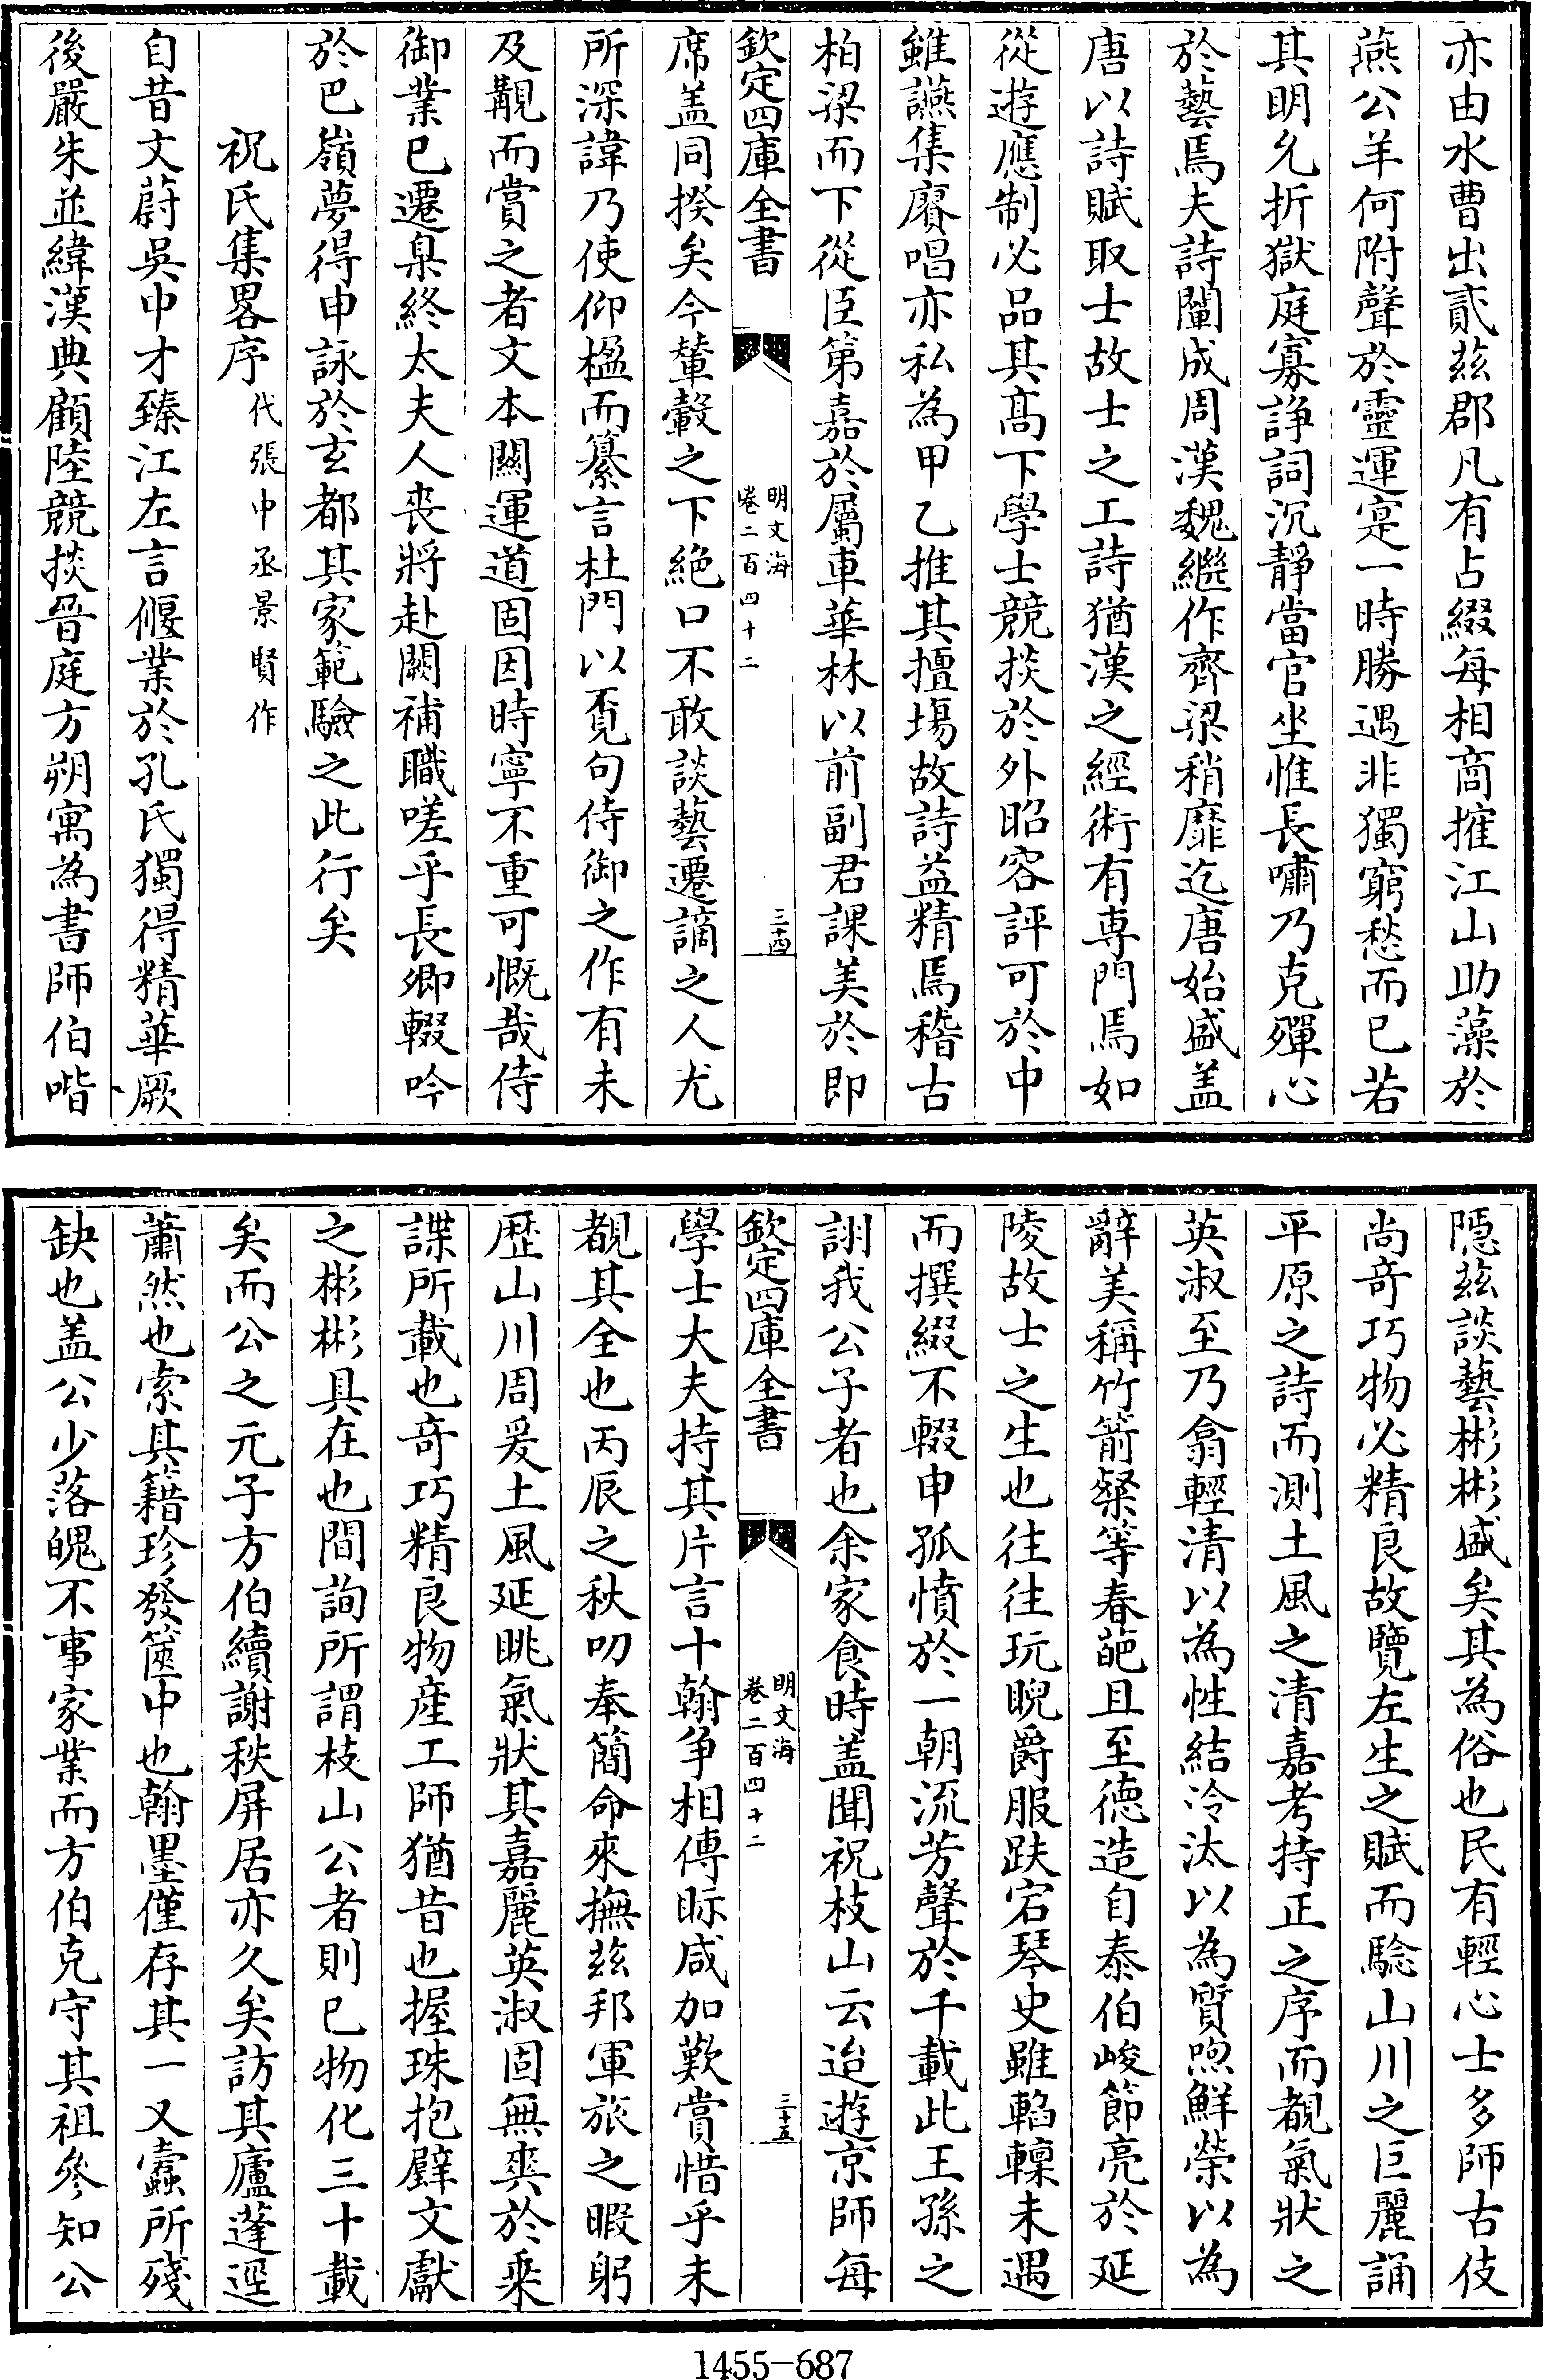 亦由水曹出貳茲郡凡有占綴每相商搉江山助藻於
燕公羊何附聲於靈運寔一時勝遇非獨窮愁而已若
其明允折獄庭寡諍詞沉靜當官坐惟長嘯乃克殫心
於藝焉夫詩闡成周漢魏繼作齊梁稍靡迄唐始盛盖
唐以詩賦取士故士之工詩猶漢之經術有専門焉如
從遊應制必品其髙下學士競掞於外昭容評可於中
雖讌集賡唱亦私為甲乙推其擅塲故詩益精焉稽古
柏梁而下從臣第嘉於屬車華林以前副君課美於即
欽定四庫全書
明文海
卷二百四十二
三十四
席盖同揆矣今輦轂之下絶口不敢談藝遷謫之人尤
所深諱乃使仰楹而纂言杜門以覔句侍御之作有未
及覯而賞之者文本關運道固因時寧不重可慨哉侍
御業已遷臬終太夫人喪將赴闕補職嗟乎長卿輟吟
於巴嶺夢得申詠於玄都其家範驗之此行矣
祝氏集畧序代張中丞景賢作
自昔文蔚吳中才臻江左言偃業於孔氏獨得精華厥
後嚴朱並緯漢典顧陸競掞晉庭方朔寓為書師伯喈
隱茲談藝彬彬盛矣其為俗也民有輕心士多師古伎
尚竒巧物必精良故覽左生之賦而騐山川之巨麗誦
平原之詩而測土風之清嘉考持正之序而覩氣狀之
英淑至乃翕輕清以為性結泠汰以為質煦鮮榮以為
辭美稱竹箭粲等春葩且至德造自泰伯峻節亮於延
陵故士之生也往往玩睨爵服趺宕琴史雖轁轈未遇
而撰綴不輟申孤憤於一朝流芳聲於千載此王孫之
詡我公子者也余家食時盖聞祝枝山云迨遊京師每
欽定四庫全書
明文海
卷二百四十二
三十五
學士大夫持其片言十翰争相傳眎咸加歎賞惜乎未
覩其全也丙辰之秋叨奉簡命來撫茲邦軍旅之暇躬
歴山川周爰土風延眺氣狀其嘉麗英淑固無爽於乗
諜所載也竒巧精良物産工師猶昔也握珠抱璧文獻
之彬彬具在也間詢所謂枝山公者則已物化三十載
矣而公之元子方伯續謝秩屏居亦久矣訪其廬蓬逕
蕭然也索其籍珍發篋中也翰墨僅存其一又蠧所殘
缺也盖公少落魄不事家業而方伯克守其祖叅知公
1455-687